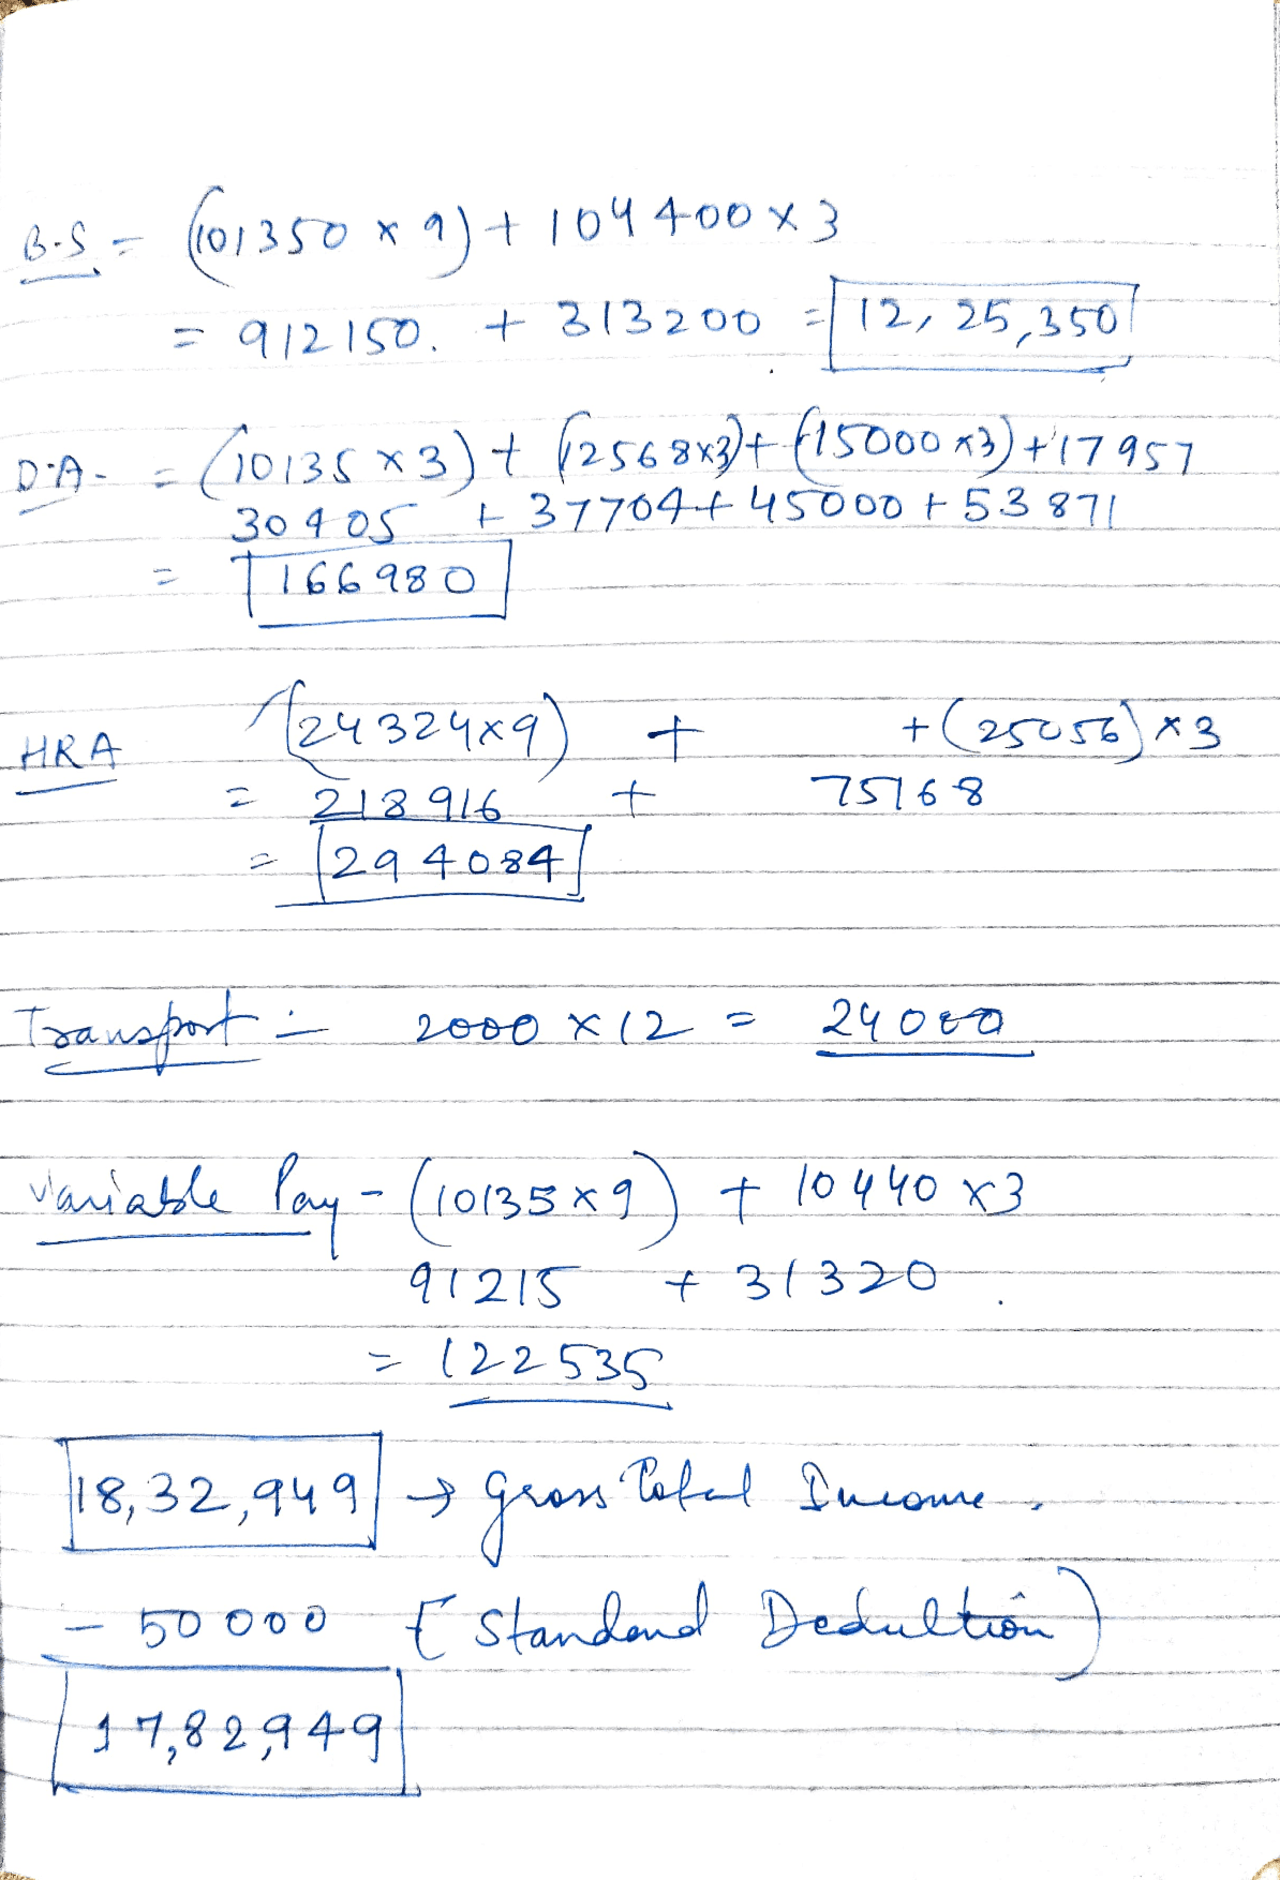 B.S. = (101350 x 9) + 104400 x 3
= 912150. + 313200 = 12,25,350
D.A. = (10135 x 3) + (12568x3) + (15000 x3) + 17957
30405 + 37704 + 45000 + 53871
= 166980
HRA (24324x9) + + (25056) x 3
= 218916 + 75168
= 294084
Transport :- 2000 x 12 = 24000
Variable Pay - (10135 x 9) + 10440 x3
91215 + 31320
= 122535
18,32,949 → Gross Total Income.
- 50000 (Standard Deduction)
17,82,949